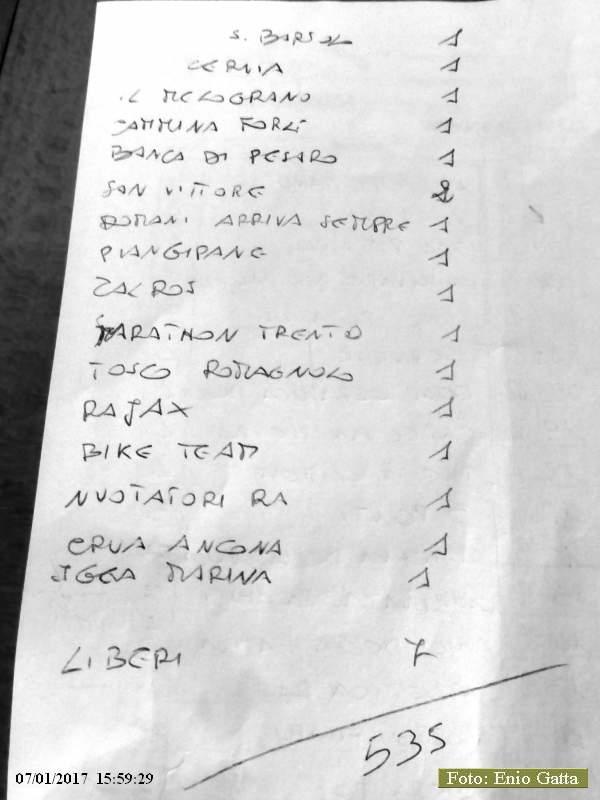 S. BARTOL 1
CERVIA 1
IL MELOGRANO 1
CAMMINA FORLÌ 1
BANCA DI PESARO 1
SAN VITTORE 2
DOMANI ARRIVA SEMPRE 1
PIANGIPANE 1
ZALROS 1
MARATHON TRENTO 1
TOSCO ROMAGNOLO 1
RAJAX 1
BIKE TEAM 1
NUOTATORI RA 1
CRUA ANCONA 1
IGEA MARINA 1
LIBERI
535
07/01/2017 15:59:29
Foto: Enio Gatta